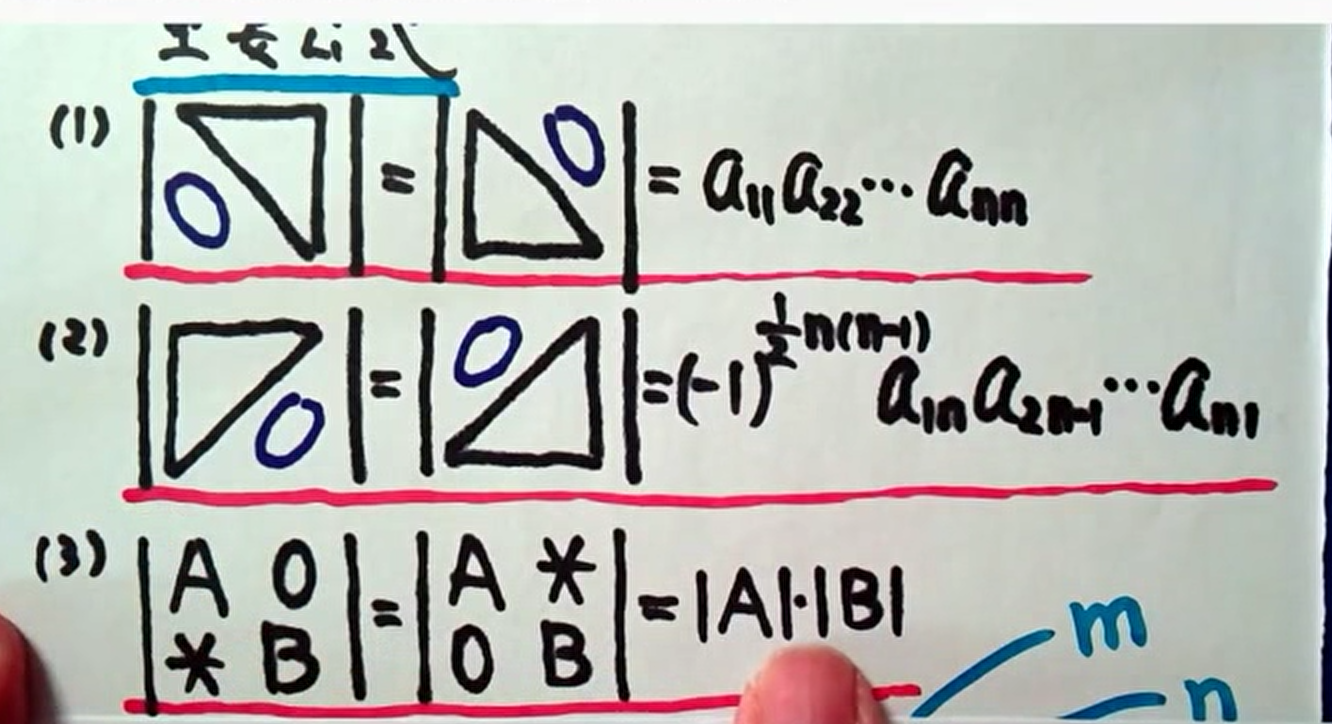 (1) | O | = | O | = a₁₁a₂₂⋯aₙₙ
(2) | O | = | O | = (-1)^{½n(n-1)} a₁ₙa₂ₙ₋₁⋯aₙ₁
(3) | A O | = | A * | = |A|·|B|
| * B | | O B |
m
n